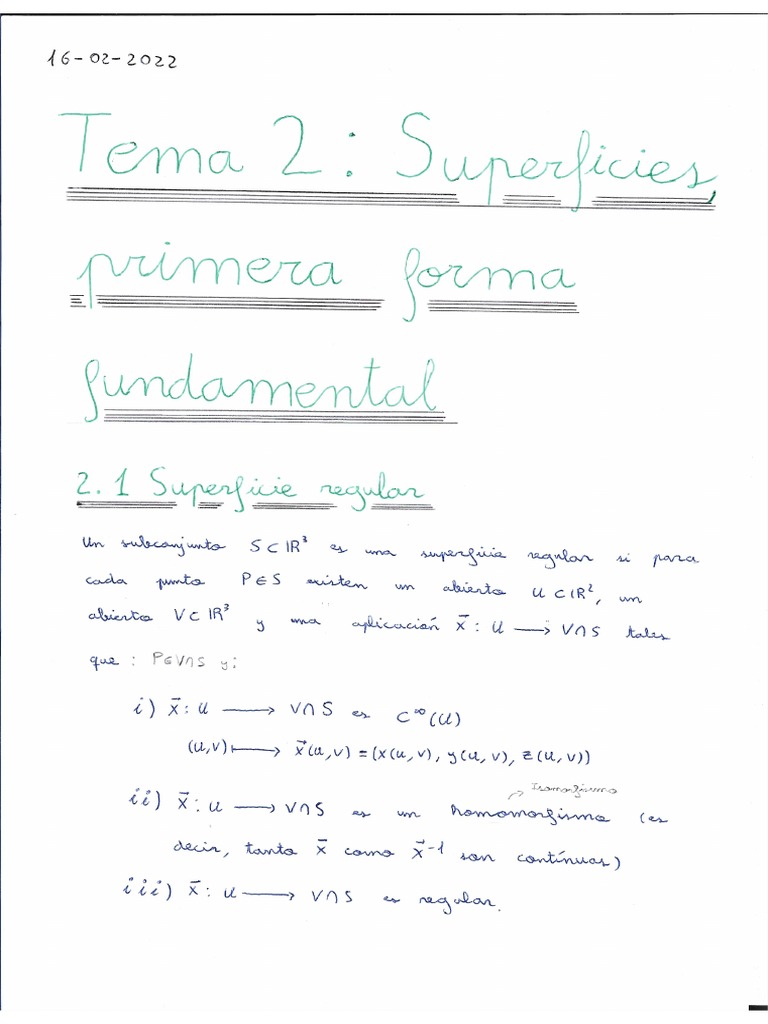 16-02-2022
Tema 2: Superficies,
primera forma
fundamental
2.1 Superficie regular
Un subconjunto S⊂ℝ³ es una superficie regular si para
cada punto P∈S existen un abierto U⊂ℝ², un
abierto V⊂ℝ³ y una aplicación x⃗: U ⟶ V∩S tales
que: P∈V∩S y:
i) x⃗: U ⟶ V∩S es C^∞(U)
(u,v) ⟼ x⃗(u,v) = (x(u,v), y(u,v), z(u,v))
Isomorfismo
ii) x⃗: U ⟶ V∩S es un homomorfismo (es
decir, tanto x⃗ como x⃗⁻¹ son contínuas)
iii) x⃗: U ⟶ V∩S es regular.